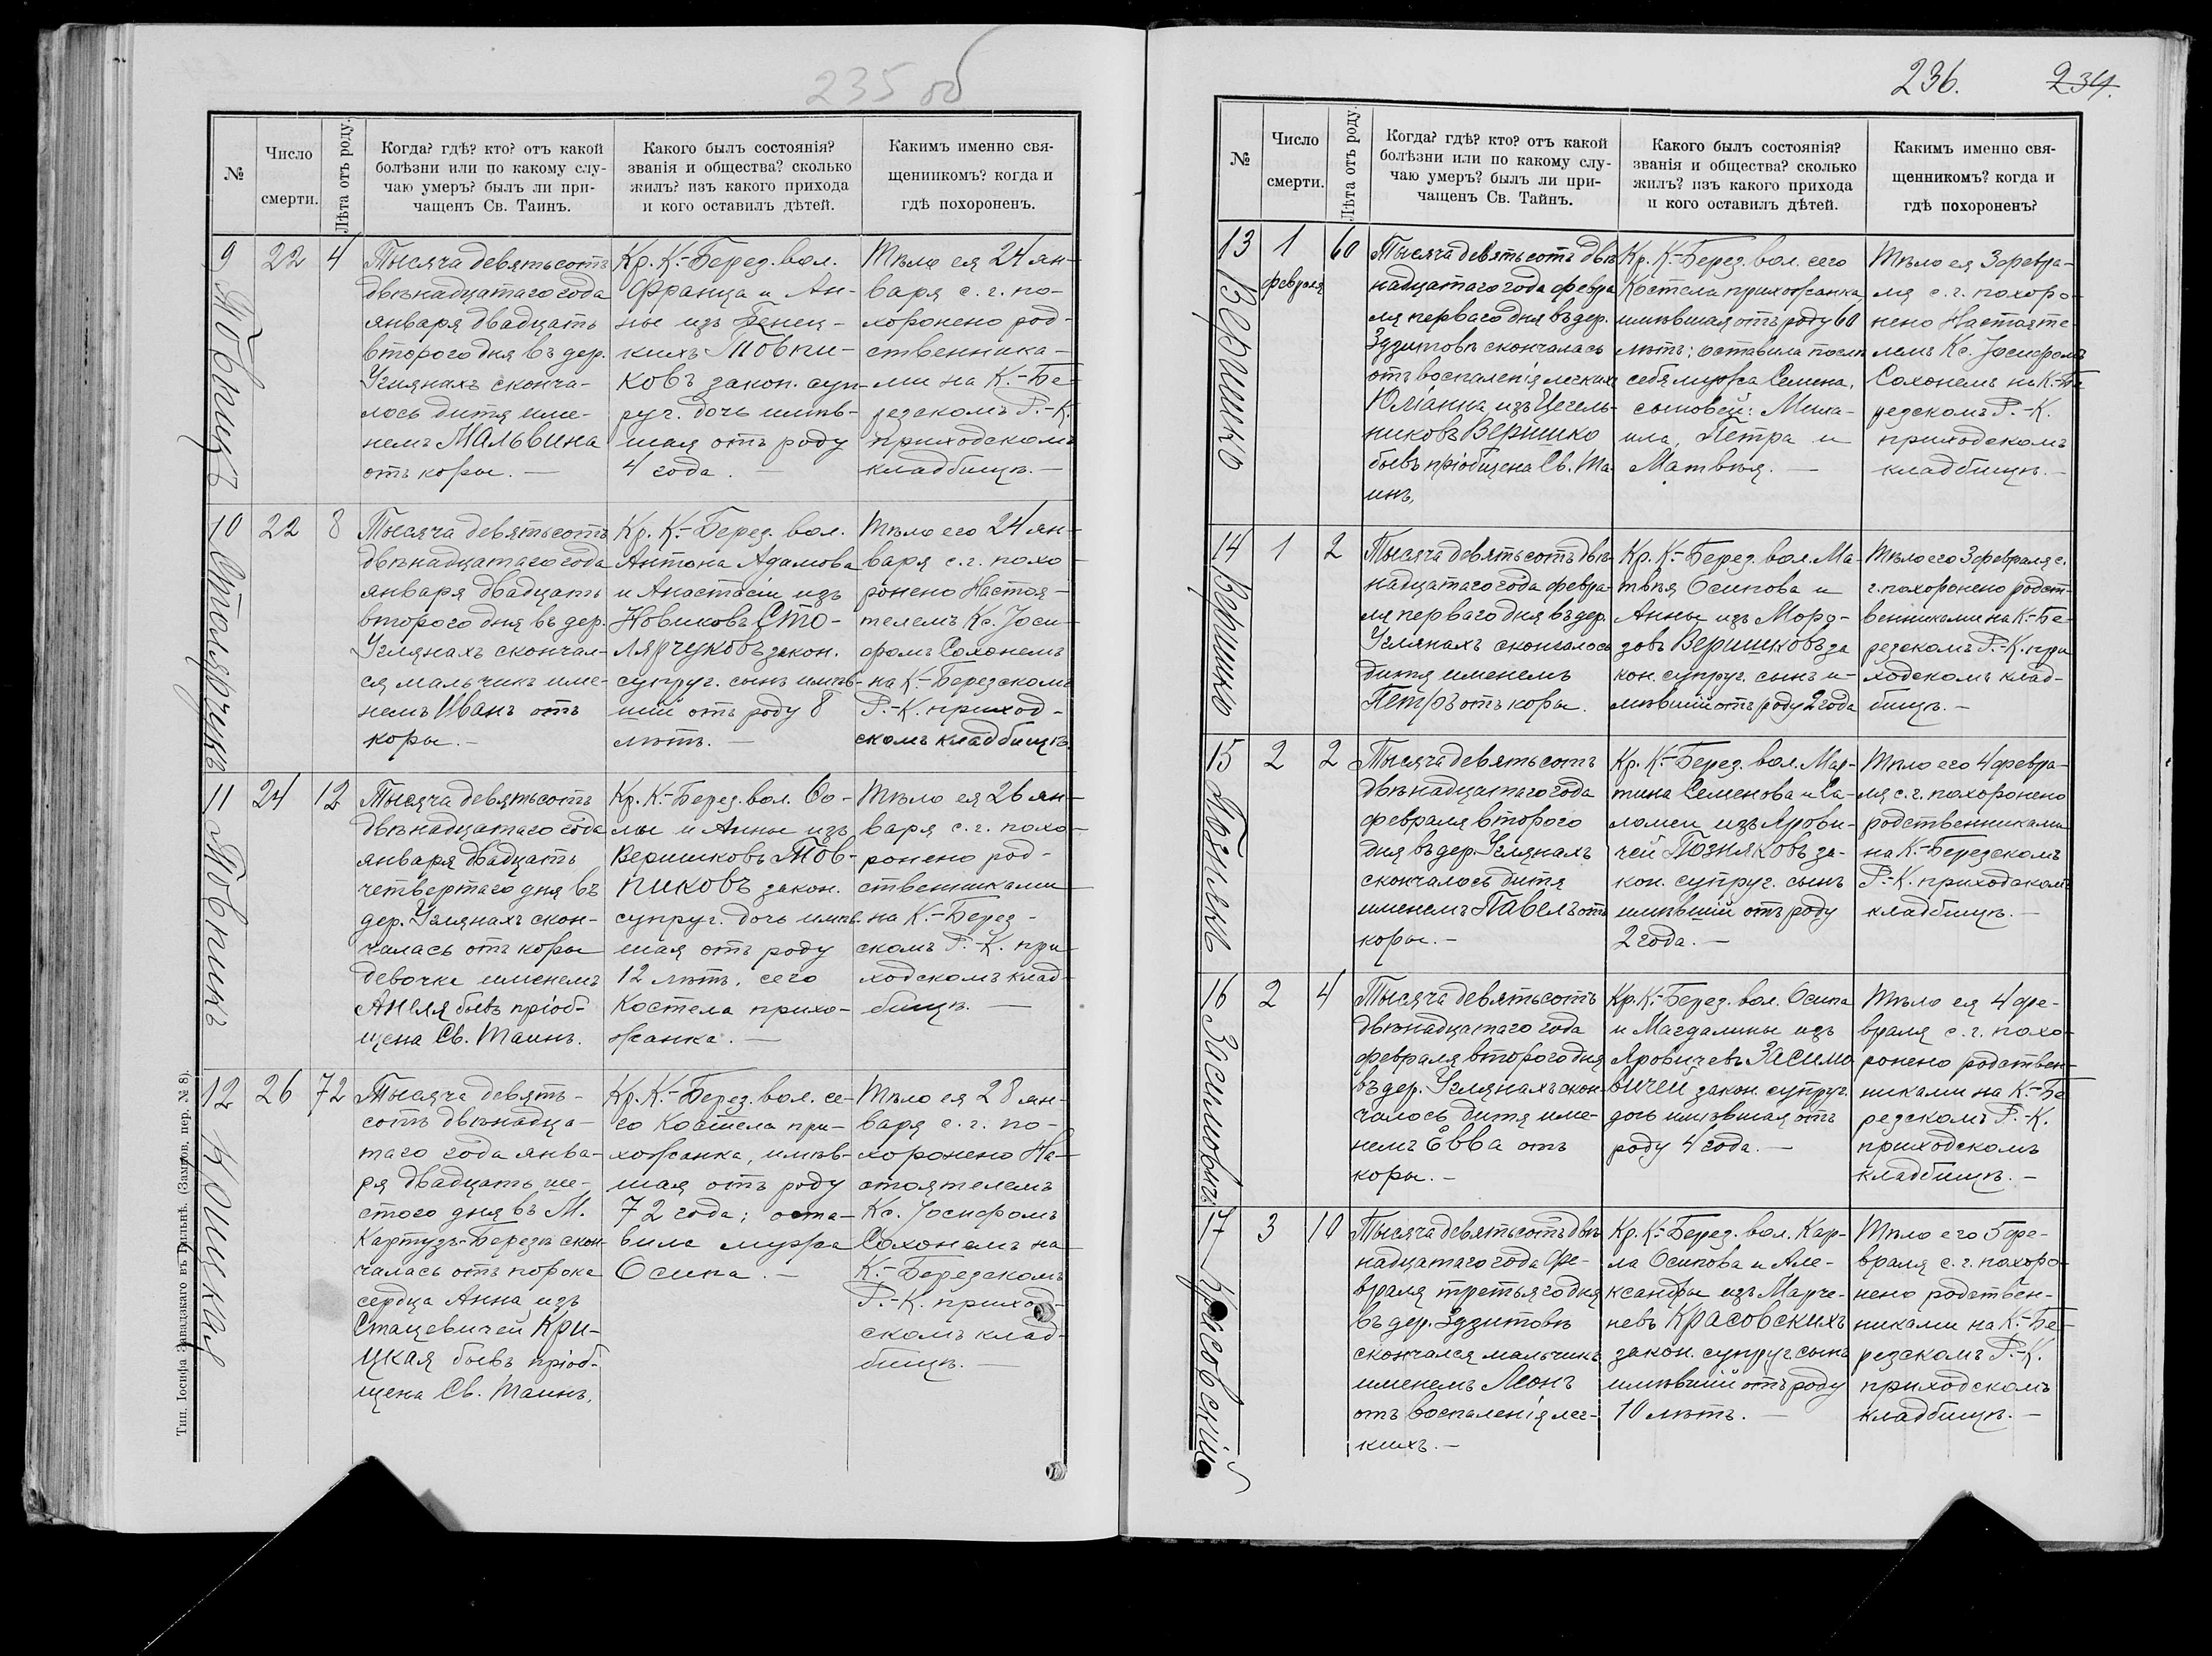 235 об
№
Число
смерти.
Лѣта отъ роду.
Когда? гдѣ? кто? отъ какой
болѣзни или по какому слу-
чаю умеръ? былъ ли при-
чащенъ Св. Таинъ.
Какого былъ состоянія?
званія и общества? сколько
жилъ? изъ какого прихода
и кого оставилъ дѣтей.
Какимъ именно свя-
щенникомъ? когда и
гдѣ похороненъ.
9
22
4
Тысяча девятьсотъ
двѣнадцатаго года
января двадцать
второго дня въ дер.
Углянахъ сконча-
лось дитя име-
немъ Мальвина
отъ коры. —
Кр. К.-Берез. вол.
Франца и Ан-
ны изъ
Товпи-
ковъ закон. суп-
руг. дочь имѣв-
шая отъ роду
4 года. —
Тѣло ея 24 ян-
варя с. г. по-
хоронено род-
ственника-
ми на К.-Бе-
резскомъ Р.-К.
приходскомъ
кладбищѣ. —
10
Столярчукъ
22
8
Тысяча девятьсотъ
двѣнадцатаго года
января двадцать
второго дня въ дер.
Углянахъ скончал-
ся мальчикъ име-
немъ Иванъ отъ
коры. —
Кр. К.-Берез. вол.
Антона Адамова
и Анастасіи изъ
Новиковъ Сто-
лярчуковъ закон.
супруг. сынъ имѣв-
шій отъ роду 8
лѣтъ. —
Тѣло его 24 ян-
варя с. г. похо-
ронено Настоя-
телемъ Кс. Іоси-
фомъ Сохонемъ
на К.-Березскомъ
Р.-К. приход-
скомъ кладбищѣ.
11
Товпикъ
24
12
Тысяча девятьсотъ
двѣнадцатаго года
января двадцать
четвертаго дня въ
дер. Углянахъ скон-
чалась отъ коры
девочка именемъ
Анеля бывъ пріоб-
щена Св. Таинъ.
Кр. К.-Берез. вол. Ѳо-
мы и Анны изъ
Вершиковъ Тов-
пиковъ закон.
супруг. дочь имѣв-
шая отъ роду
12 лѣтъ, сего
Костела прихо-
жанка. —
Тѣло ея 26 ян-
варя с. г. похо-
ронено род-
ственниками
на К.-Берез-
скомъ Р.-К. при-
ходскомъ клад-
бищѣ. —
12
Крицкая
26
72
Тысяча девять-
сотъ двѣнадца-
таго года янва-
ря двадцать ше-
стого дня въ М.
Картузъ-Березѣ скон-
чалась отъ порока
сердца Анна изъ
Стацевичей Кри-
цкая бывъ пріоб-
щена Св. Таинъ.
Кр. К.-Берез. вол. се-
го Костела при-
хожанка, имѣв-
шая отъ роду
72 года; оста-
вила мужа
Осипа. —
Тѣло ея 28 ян-
варя с. г. по-
хоронено На-
стоятелемъ
Кс. Іосифомъ
Сохонемъ на
К.-Березскомъ
Р.-К. приход-
скомъ клад-
бищѣ. —
Тип. Іосифа Завадзкаго въ Вильнѣ. (Замков. пер. № 8).
236.
234.
№
Число
смерти.
Лѣта отъ роду.
Когда? гдѣ? кто? отъ какой
болѣзни или по какому слу-
чаю умеръ? былъ ли при-
чащенъ Св. Тайнъ.
Какого былъ состоянія?
званія и общества? сколько
жилъ? изъ какого прихода
и кого оставилъ дѣтей.
Какимъ именно свя-
щенникомъ? когда и
гдѣ похороненъ?
13
Вершико
1
февраля
60
Тысяча девятьсотъ двѣ-
надцатаго года февра-
ля перваго дня въ дер.
Здзитовѣ скончалась
отъ воспаленія легкихъ
Юліанна изъ Цегель-
никовъ Вершико
бывъ пріобщена Св. Та-
инъ.
Кр. К.-Берез. вол. сего
Костела прихожанка,
имѣвшая отъ роду 60
лѣтъ; оставила послѣ
себя мужа Семена,
сыновей: Миха-
ила, Петра и
Матвѣя. —
Тѣло ея 3 февра-
ля с. г. похоро-
нено Настояте-
лемъ Кс. Іосифомъ
Сохонемъ на К.-Бе-
резскомъ Р.-К.
приходскомъ
кладбищѣ. —
14
Вершико
1
2
Тысяча девятьсотъ двѣ-
надцатаго года февра-
ля перваго дня въ дер.
Углянахъ скончалось
дитя именемъ
Петръ отъ коры.
Кр. К.-Берез. вол. Ма-
твѣя Осипова и
Анны изъ Моро-
зовъ Вершиковъ за-
кон. супруг. сынъ и-
мѣвшій отъ роду 2 года
Тѣло его 3 февраля с.
г. похоронено родст-
венниками на К.-Бе-
резскомъ Р.-К. при-
ходскомъ клад-
бищѣ. —
15
Познякъ
2
2
Тысяча девятьсотъ
двѣнадцатаго года
февраля второго
дня въ дер. Углянахъ
скончалось дитя
именемъ Павелъ отъ
коры. —
Кр. К.-Берез. вол. Мар-
тина Семенова и Са-
ломеи изъЯрови-
чей Позняковъ за-
кон. супруг. сынъ
имѣвшій отъ роду
2 года. —
Тѣло его 4 февра-
ля с. г. похоронено
родственниками
на К.-Березскомъ
Р.-К. приходскомъ
кладбищѣ. —
16
Засимовичъ
2
4
Тысяча девятьсотъ
двѣнадцатаго года
февраля второго дня
въ дер. Углянахъ скон-
чалось дитя име-
немъ Евва отъ
коры. —
Кр. К.-Берез. вол. Осипа
и Магдалины изъ
Яровичевъ Засимо-
вичей закон. супруг.
дочь имѣвшая отъ
роду 4 года. —
Тѣло ея 4 фе-
враля с. г. похо-
ронено родствен-
никами на К.-Бе-
резскомъ Р.-К.
приходскомъ
кладбищѣ. —
17
Красовскій
3
10
Тысяча девятьсотъ двѣ-
надцатаго года Фе-
враля третьяго дня
въ дер. Здзитовѣ
скончался мальчикъ
именемъ Леонъ
отъ воспаленія лег-
кихъ. —
Кр. К.-Берез. вол. Кар-
ла Осипова и Але-
ксандры изъ Марче-
невъ Красовскихъ
закон. супруг. сынъ
имѣвшій отъ роду
10 лѣтъ. —
Тѣло его 5 фе-
враля с. г. похоро-
нено родствен-
никами на К.-Бе-
резскомъ Р.-К.
приходскомъ
кладбищѣ. —